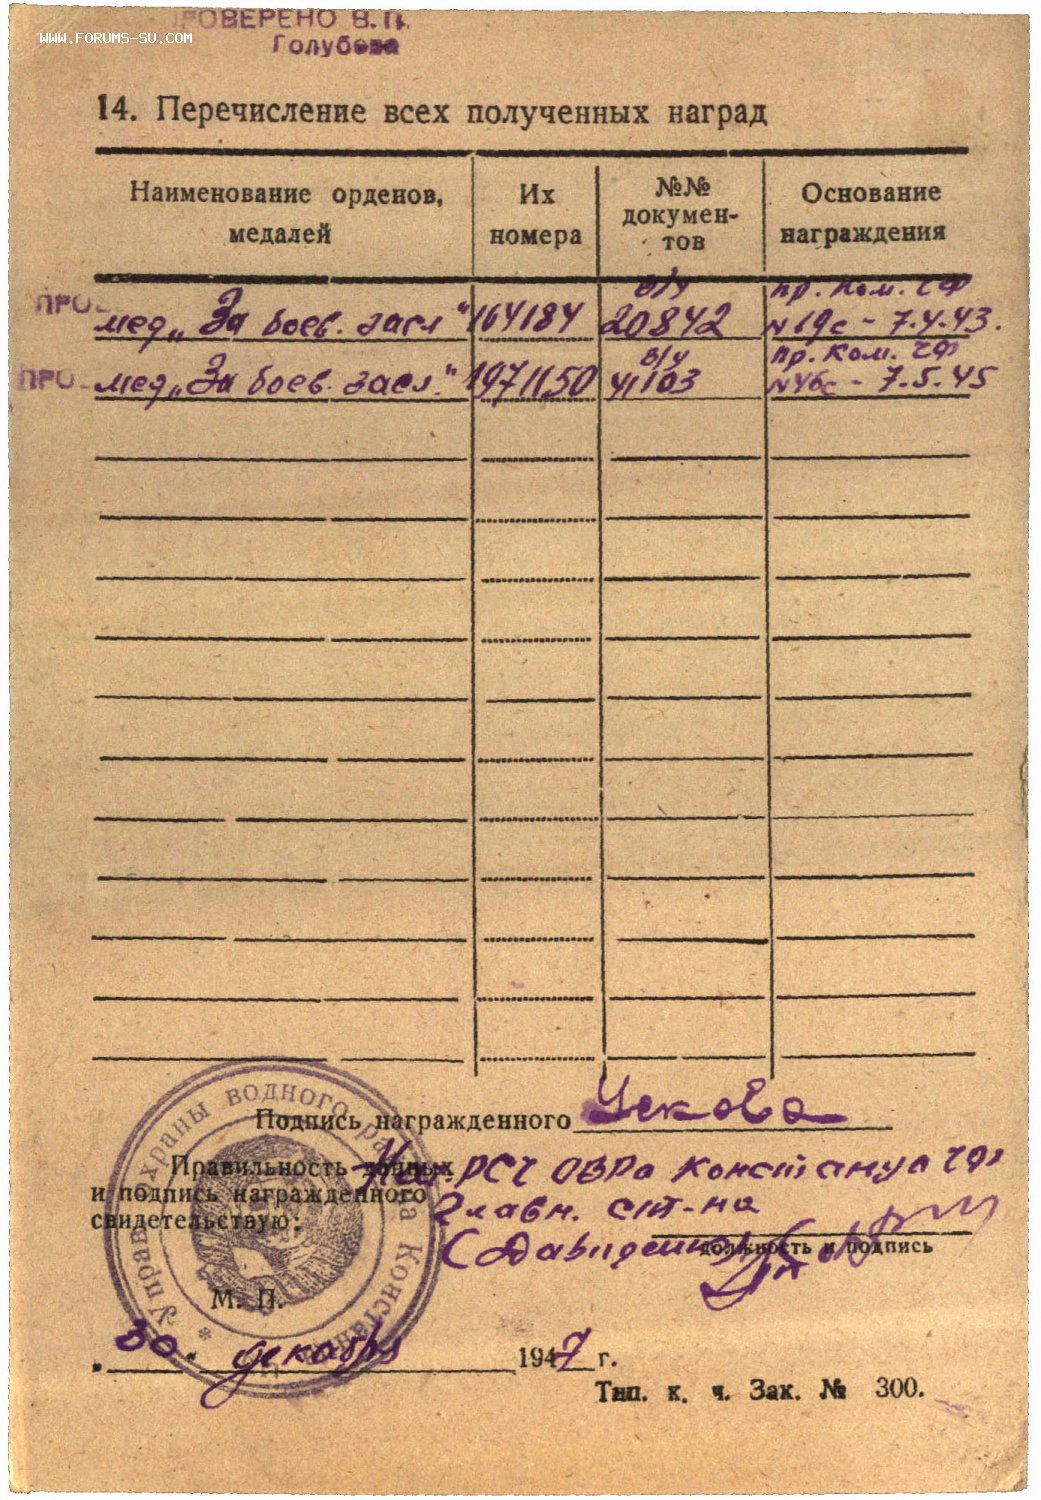 ПРОВЕРЕНО В.П.
WWW.FORUMS-SU.COM
Голубева
14. Перечисление всех полученных наград
Наименование орденов, медалей
Их номера
№№ докумен-тов
Основание награждения
ПРО
мед „За боев. засл" 164184 в/у 20842 пр. ком. ЧФ N 19с - 7.4.43.
ПРО
мед „За боев. засл." 1971150 в/у 41103 пр. ком. ЧФ N 46с - 7.5.45
Подпись награжденного Ускова
Правильность данных Нач. РСЧ ОВРа Констанца ЧФ
и подпись награжденного Главн. ст-на
свидетельствую:
(Давиденко)
должность и подпись
М. П.
Управ охраны водного района Констанца
„30" декабря 1947 г.
Тип. к. ч. Зак. № 300.